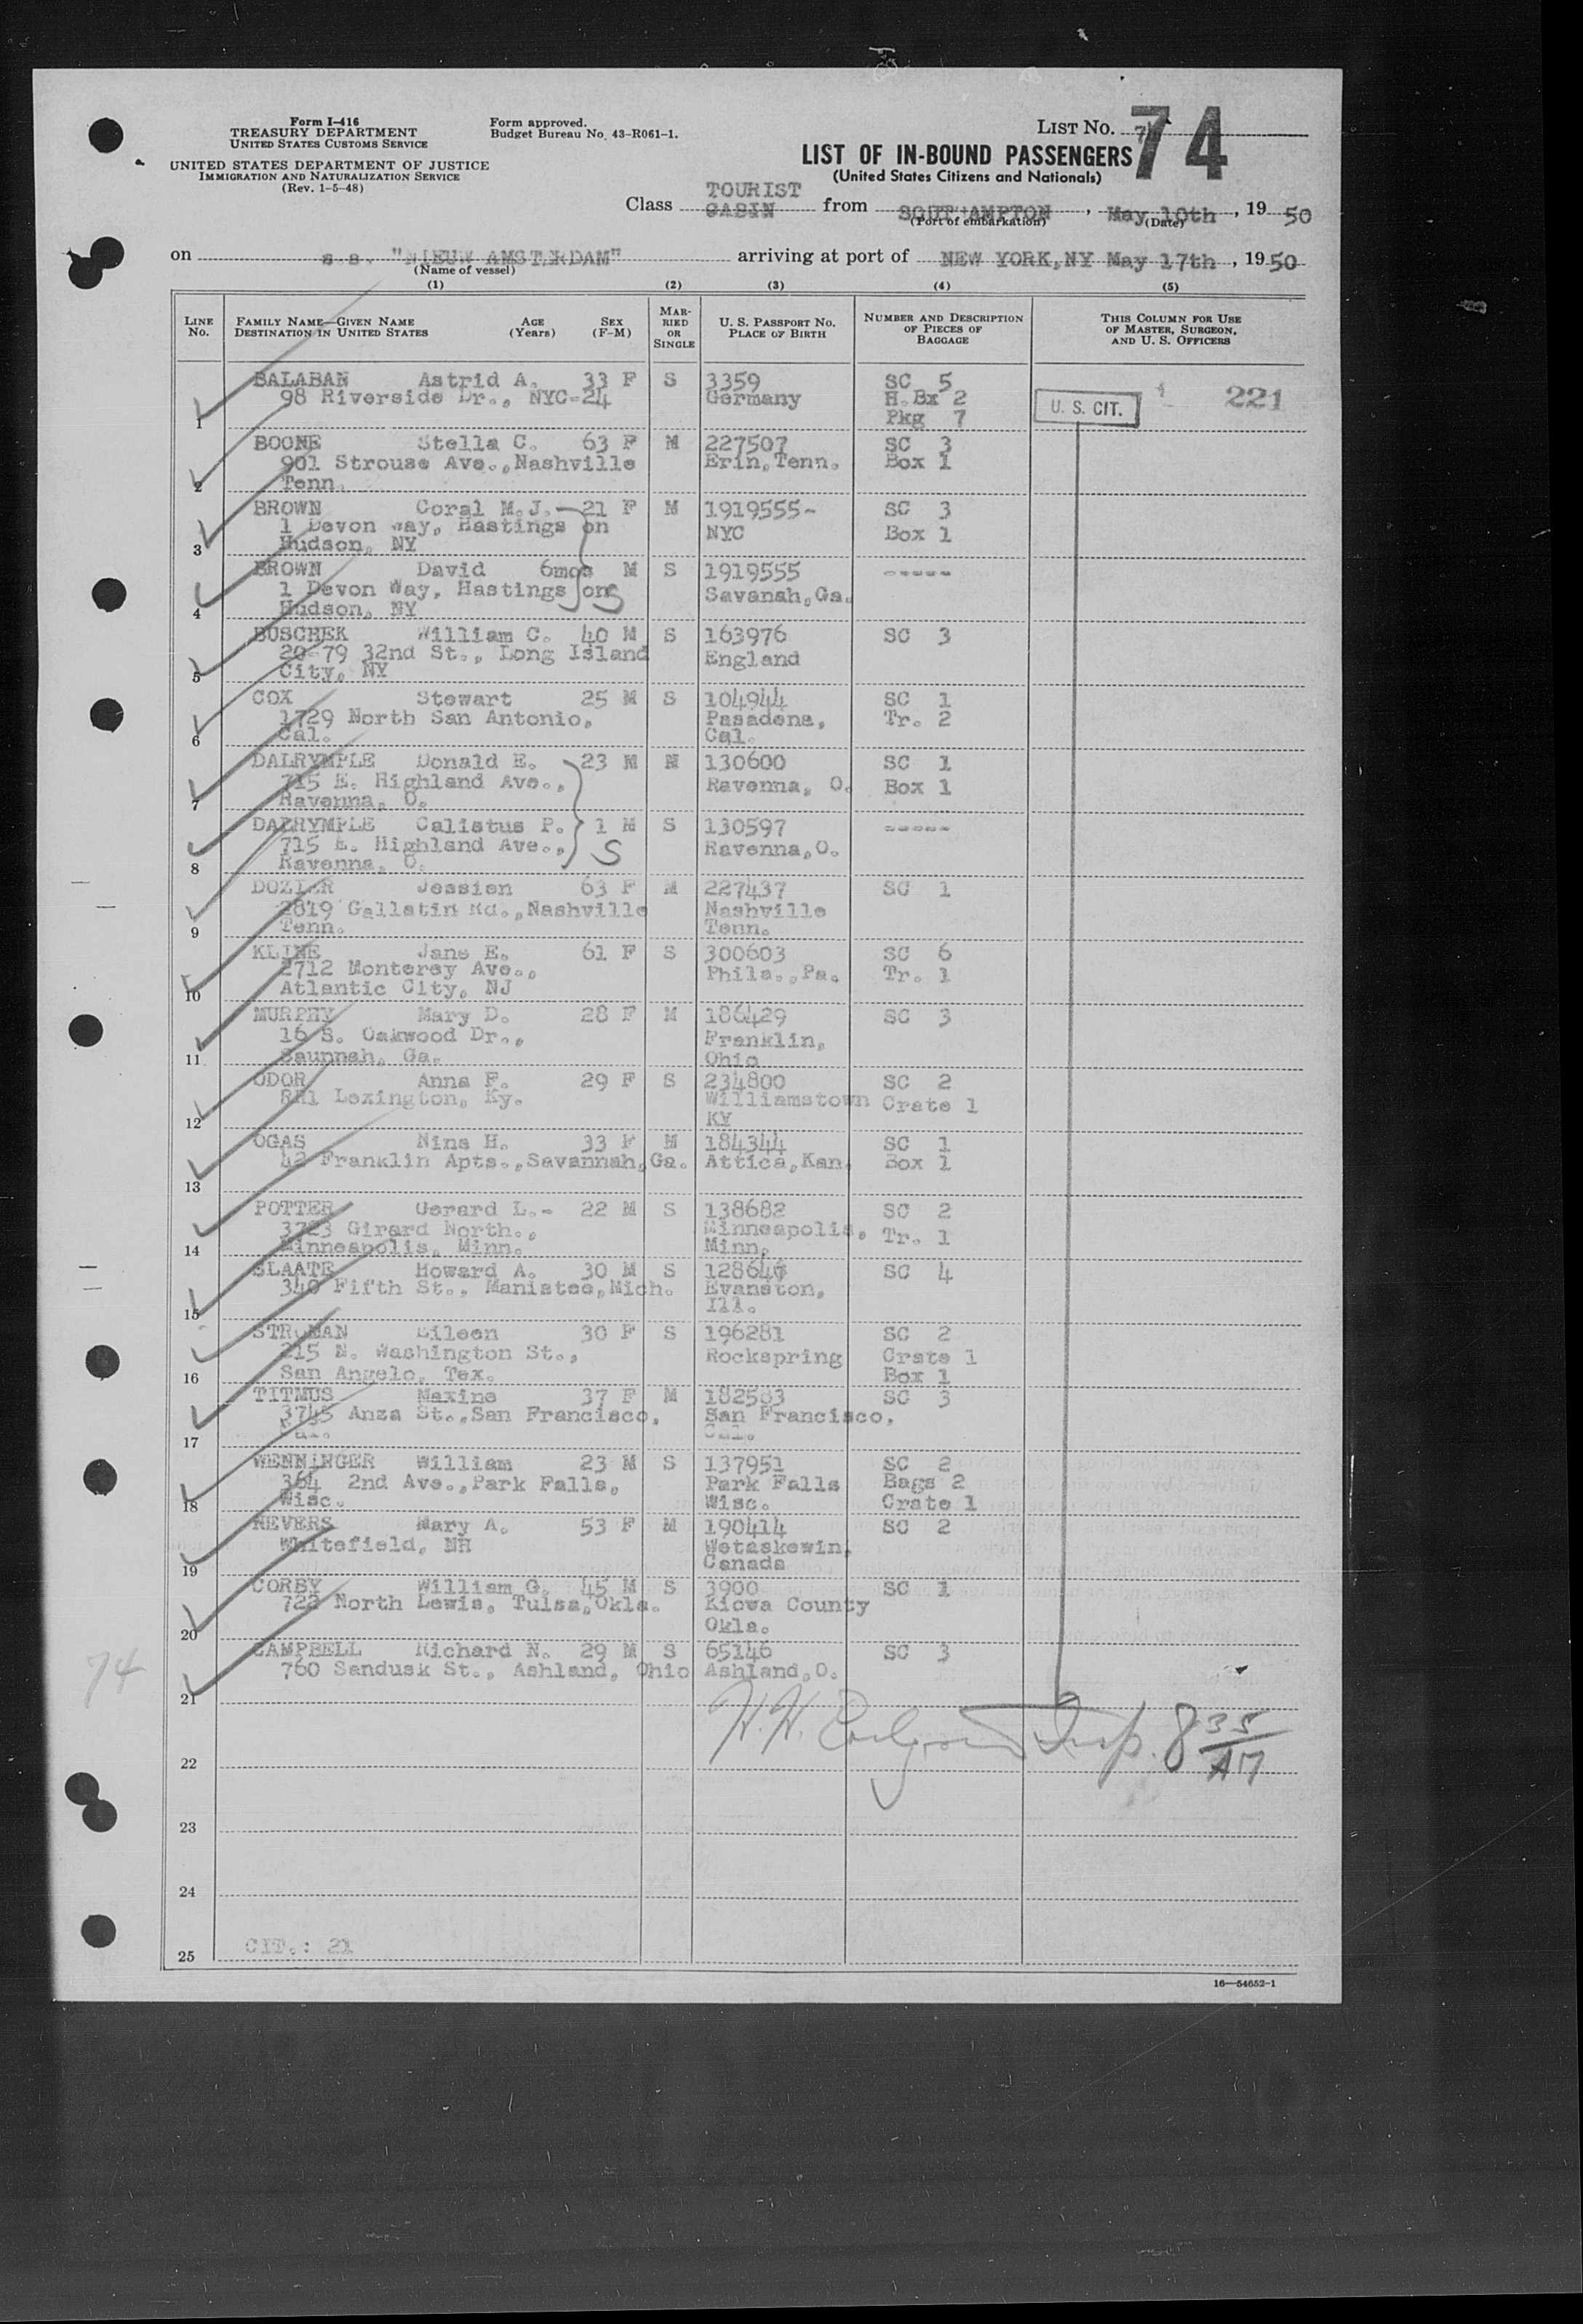 Form I-416
TREASURY DEPARTMENT
UNITED STATES CUSTOMS SERVICE
UNITED STATES DEPARTMENT OF JUSTICE
IMMIGRATION AND NATURALIZATION SERVICE
(Rev. 1-5-48)
Form approved.
Budget Bureau No. 43-R061-1.
LIST NO. 74
LIST OF IN-BOUND PASSENGERS
(United States Citizens and Nationals)
TOURIST
Class CABIN from SOUTHAMPTON, May 10th, 19 50
(Port of embarkation) (Date)
on s.s. "NIEUW AMSTERDAM" arriving at port of NEW YORK,NY May 17th, 19 50
(Name of vessel)
(1) (2) (3) (4) (5)
LINE NO.
FAMILY NAME—GIVEN NAME AGE SEX
DESTINATION IN UNITED STATES (Years) (F-M)
MARRIED OR SINGLE
U. S. PASSPORT NO.
PLACE OF BIRTH
NUMBER AND DESCRIPTION
OF PIECES OF
BAGGAGE
THIS COLUMN FOR USE
OF MASTER, SURGEON,
AND U. S. OFFICERS
BALABAN Astrid A. 33 F S 3359 SC 5
98 Riverside Dr., NYC-24 Germany H.Bx 2 U. S. CIT. 221
1 Pkg 7
BOONE Stella C. 63 F M 227507 SC 3
901 Strouse Ave.,Nashville Erin,Tenn. Box 1
2 Tenn.
BROWN Coral M.J. 21 F M 1919555- SC 3
1 Devon Way, Hastings on NYC Box 1
3 Hudson, NY
BROWN David 6mos M S 1919555 -----
1 Devon Way, Hastings on Savanah,Ga.
4 Hudson, NY
BUSCHEK William C. 40 M S 163976 SC 3
20-79 32nd St., Long Island England
5 City, NY
COX Stewart 25 M S 104944 SC 1
1729 North San Antonio, Pasadena, Tr. 2
6 Cal. Cal.
DALRYMPLE Donald E. 23 M M 130600 SC 1
715 E. Highland Ave., Ravenna, O. Box 1
7 Ravenna, O.
DALRYMPLE Calistus P. 1 M S 130597 -----
715 E. Highland Ave., S Ravenna,O.
8 Ravenna, O.
DOZIER Jessien 63 F M 227437 SC 1
2819 Gallatin Rd.,Nashville Nashville
9 Tenn. Tenn.
KLINE Jane E. 61 F S 300603 SC 6
2712 Monterey Ave., Phila.,Pa. Tr. 1
10 Atlantic City, NJ
MURPHY Mary D. 28 F M 186429 SC 3
16 S. Oakwood Dr., Franklin,
11 Saunnah, Ga. Ohio
ODOR Anna F. 29 F S 234800 SC 2
RR1 Lexington, Ky. Williamstown Crate 1
12 KY
OGAS Nina H. 33 F M 184344 SC 1
42 Franklin Apts.,Savannah,Ga. Attica,Kan. Box 1
13
POTTER Gerard L.- 22 M S 138682 SC 2
3723 Girard North., Minneapolis, Tr. 1
14 Minneapolis, Minn. Minn.
SLAATE Howard A. 30 M S 128646 SC 4
340 Fifth St., Manistee,Mich. Evanston,
15 Ill.
STROMAN Eileen 30 F S 196281 SC 2
215 N. Washington St., Rockspring Crate 1
16 San Angelo, Tex. Box 1
TITMUS Maxine 37 F M 182583 SC 3
3745 Anza St.,San Francisco, San Francisco,
17 Cal. Cal.
WENNINGER William 23 M S 137951 SC 2
364 2nd Ave.,Park Falls, Park Falls Bags 2
18 Wisc. Wisc. Crate 1
NEVERS Mary A. 53 F M 190414 SC 2
Whitefield, NH Wetaskewin,
19 Canada
CORBY William G. 45 M S 3900 SC 1
722 North Lewis, Tulsa,Okla. Kiowa County
20 Okla.
CAMPBELL Richard N. 29 M S 65146 SC 3
760 Sandusk St., Ashland, Ohio Ashland,O.
74
21
H.H. Insp. 8 35/AM
22
23
24
25 CIT.: 21
16—54652-1